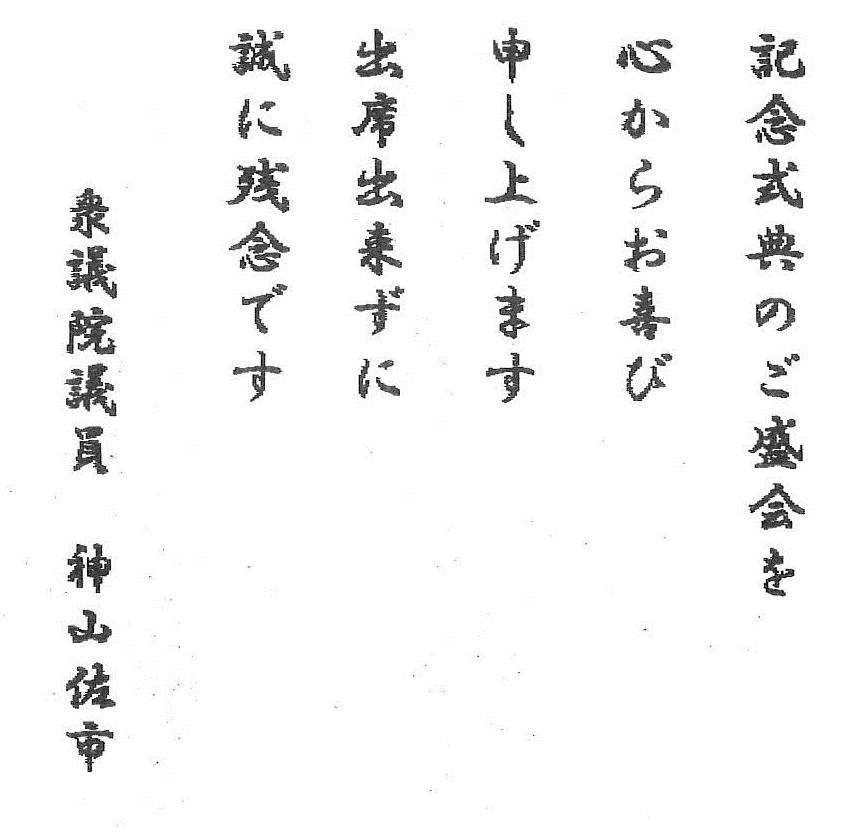 記念式典のご盛会を
心からお喜び
申し上げます
出席出来ずに
誠に残念です
衆議院議員　神山佐市